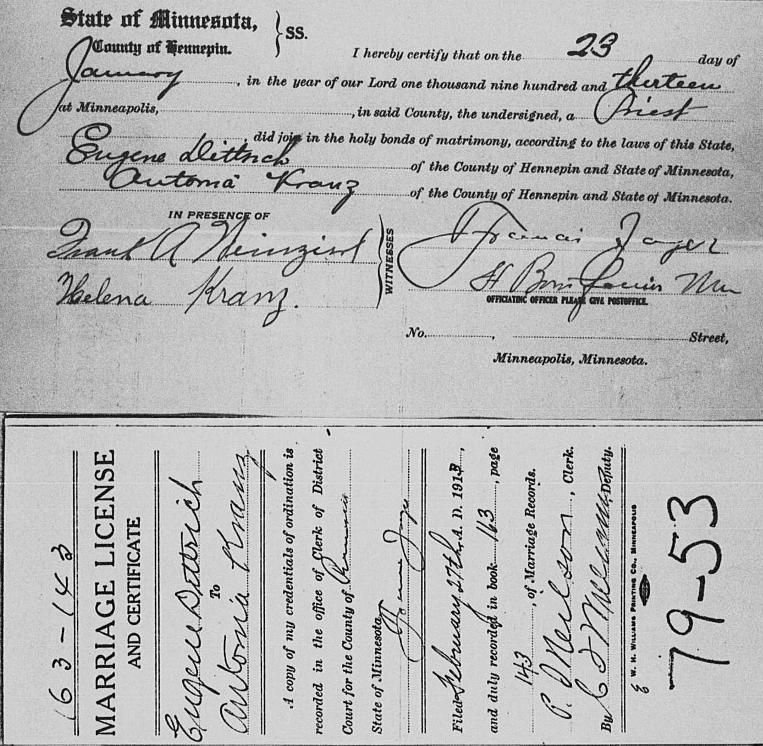 State of Minnesota,
County of Hennepin.
SS.
I hereby certify that on the 23 day of
January, in the year of our Lord one thousand nine hundred and thirteen
at Minneapolis, , in said County, the undersigned, a Priest
, did join in the holy bonds of matrimony, according to the laws of this State,
Eugene Dittrich of the County of Hennepin and State of Minnesota,
Antonia Kranz of the County of Hennepin and State of Minnesota.
IN PRESENCE OF
Frank A
Helena Kranz.
WITNESSES
Francis Jager
St Bonifacius Min
OFFICIATING OFFICER PLEASE GIVE POSTOFFICE.
No. , Street,
Minneapolis, Minnesota.
163-143
MARRIAGE LICENSE
AND CERTIFICATE
Eugene Dittrich
To
Antonia Kranz
A copy of my credentials of ordination is
recorded in the office of Clerk of District
Court for the County of
State of Minnesota
Filed February 27th, A. D. 1913,
and duly recorded in book 163, page
143, of Marriage Records.
P. S. Neilson, Clerk.
By Deputy.
W. H. WILLIAMS PRINTING CO., MINNEAPOLIS
79-53